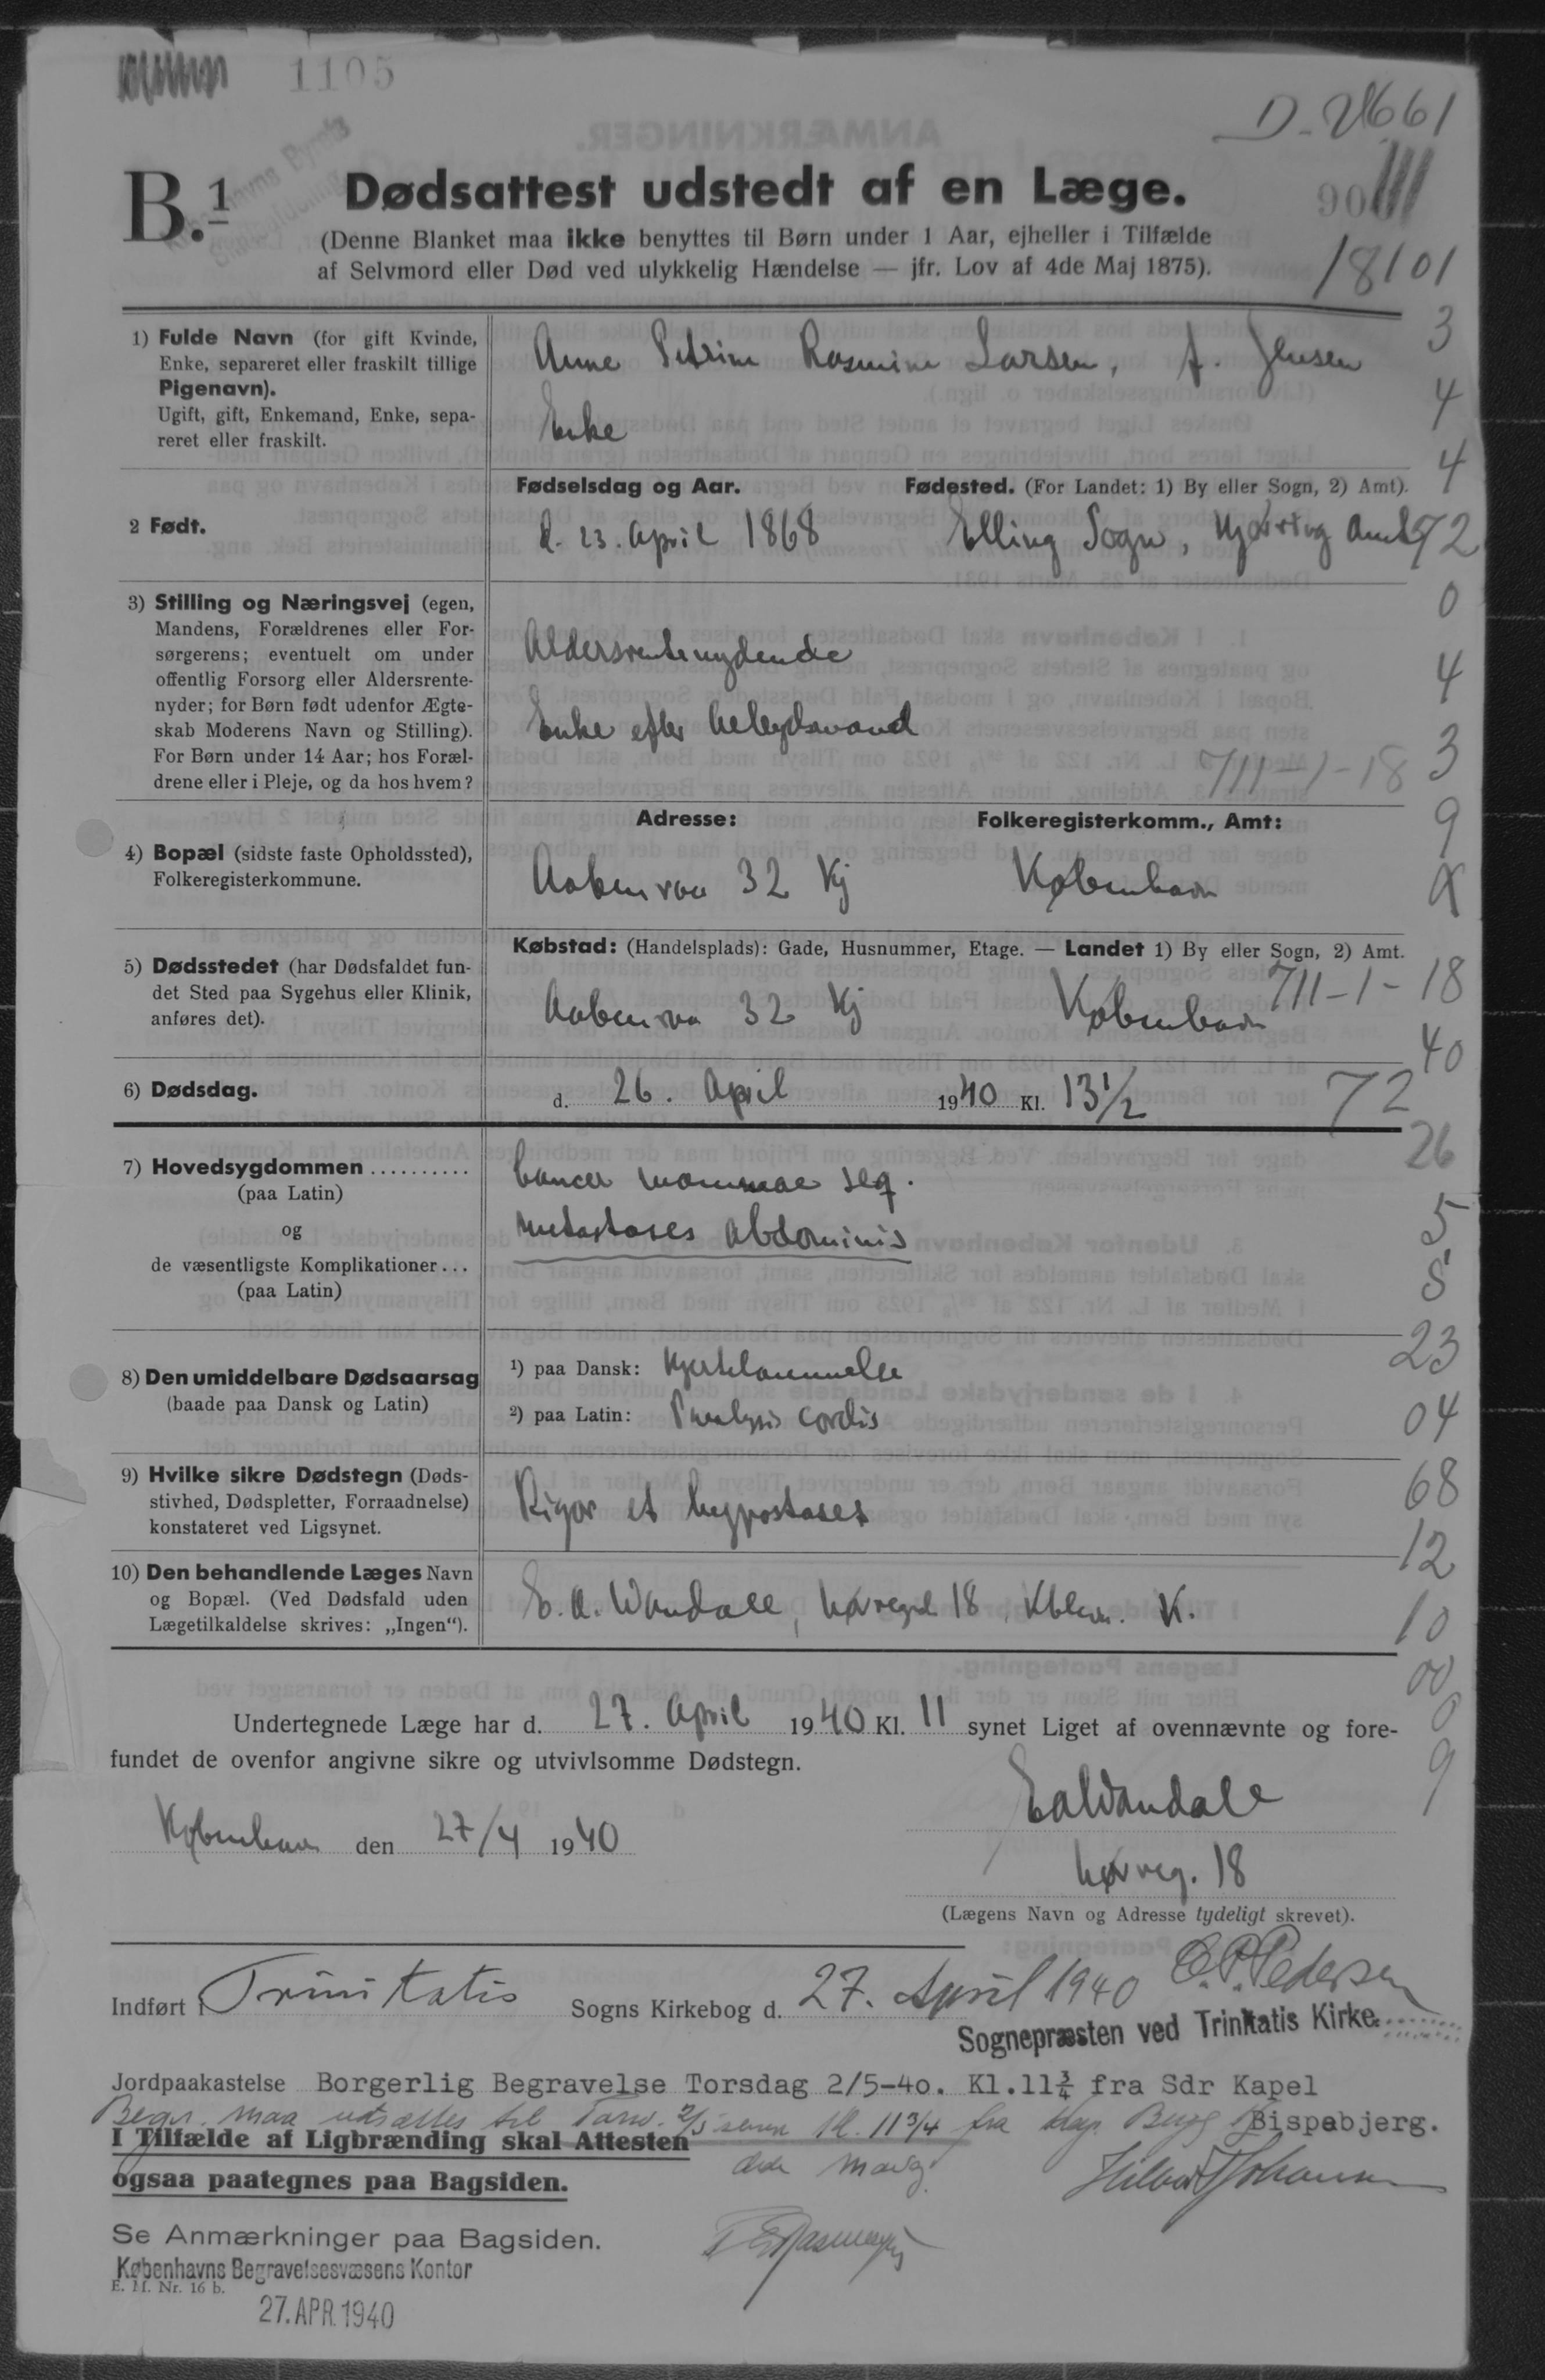 1105
D. 21661
B.1
Dødsattest udstedt af en Læge.
(Denne Blanket maa ikke benyttes til Børn under 1 Aar, ejheller i Tilfælde
af Selvmord eller Død ved ulykkelig Hændelse — jfr. Lov af 4de Maj 1875).
18101
1) Fulde Navn (for gift Kvinde,
Enke, separeret eller fraskilt tillige
Pigenavn).
Ugift, gift, Enkemand, Enke, sepa-
reret eller fraskilt.
Anne Petrine Rasmine Larsen, f. Jensen
Enke
3
4
4
2 Født.
Fødselsdag og Aar.
Fødested. (For Landet: 1) By eller Sogn, 2) Amt).
d. 23. April 1868
Elling Sogn, Hjørring Amt
72
0
3) Stilling og Næringsvej (egen,
Mandens, Forældrenes eller For-
sørgerens; eventuelt om under
offentlig Forsorg eller Aldersrente-
nyder; for Børn født udenfor Ægte-
skab Moderens Navn og Stilling).
For Børn under 14 Aar; hos Foræl-
drene eller i Pleje, og da hos hvem?
Aldersrentenydende
Enke efter Arbejdsmand
4
3
711-1-18
9
4) Bopæl (sidste faste Opholdssted),
Folkeregisterkommune.
Adresse:
Folkeregisterkomm., Amt:
Aabenraa 32 Kj
København
X
5) Dødsstedet (har Dødsfaldet fun-
det Sted paa Sygehus eller Klinik,
anføres det).
Købstad: (Handelsplads): Gade, Husnummer, Etage. — Landet 1) By eller Sogn, 2) Amt.
711-1-18
Aabenraa 32 Kj
København
40
6) Dødsdag.
d. 26. April 1940 Kl. 13 1/2
72
26
7) Hovedsygdommen ..........
(paa Latin)
og
de væsentligste Komplikationer...
(paa Latin)
Cancer mammae seq.
metastases abdominis
5
S
23
8) Den umiddelbare Dødsaarsag
(baade paa Dansk og Latin)
1) paa Dansk: Hjertelammelse
2) paa Latin: Paralysis cordis
04
9) Hvilke sikre Dødstegn (Døds-
stivhed, Dødspletter, Forraadnelse)
konstateret ved Ligsynet.
Rigor et hypostases
68
12
10) Den behandlende Læges Navn
og Bopæl. (Ved Dødsfald uden
Lægetilkaldelse skrives: „Ingen“).
E. A. Wandall, Nørregd 18, Kbhvn. K.
10
00
0
9
Undertegnede Læge har d. 27. April 1940 Kl. 11 synet Liget af ovennævnte og fore-
fundet de ovenfor angivne sikre og utvivlsomme Dødstegn.
København den 27/4 1940
EAWandall
Nørreg. 18
(Lægens Navn og Adresse tydeligt skrevet).
Indført i Trinitatis Sogns Kirkebog d. 27. April 1940
C.P. Pedersen
Sognepræsten ved Trinitatis Kirke.
Jordpaakastelse Borgerlig Begravelse Torsdag 2/5-40. Kl.11¾ fra Sdr Kapel
Begr. maa udsættes til Torsd. 2/5 Kl. 11 3/4 fra Kap. Bispebjerg.
I Tilfælde af Ligbrænding skal Attesten
ogsaa paategnes paa Bagsiden.
Se Anmærkninger paa Bagsiden.
Københavns Begravelsesvæsens Kontor
E. M. Nr. 16 b.
27. APR. 1940